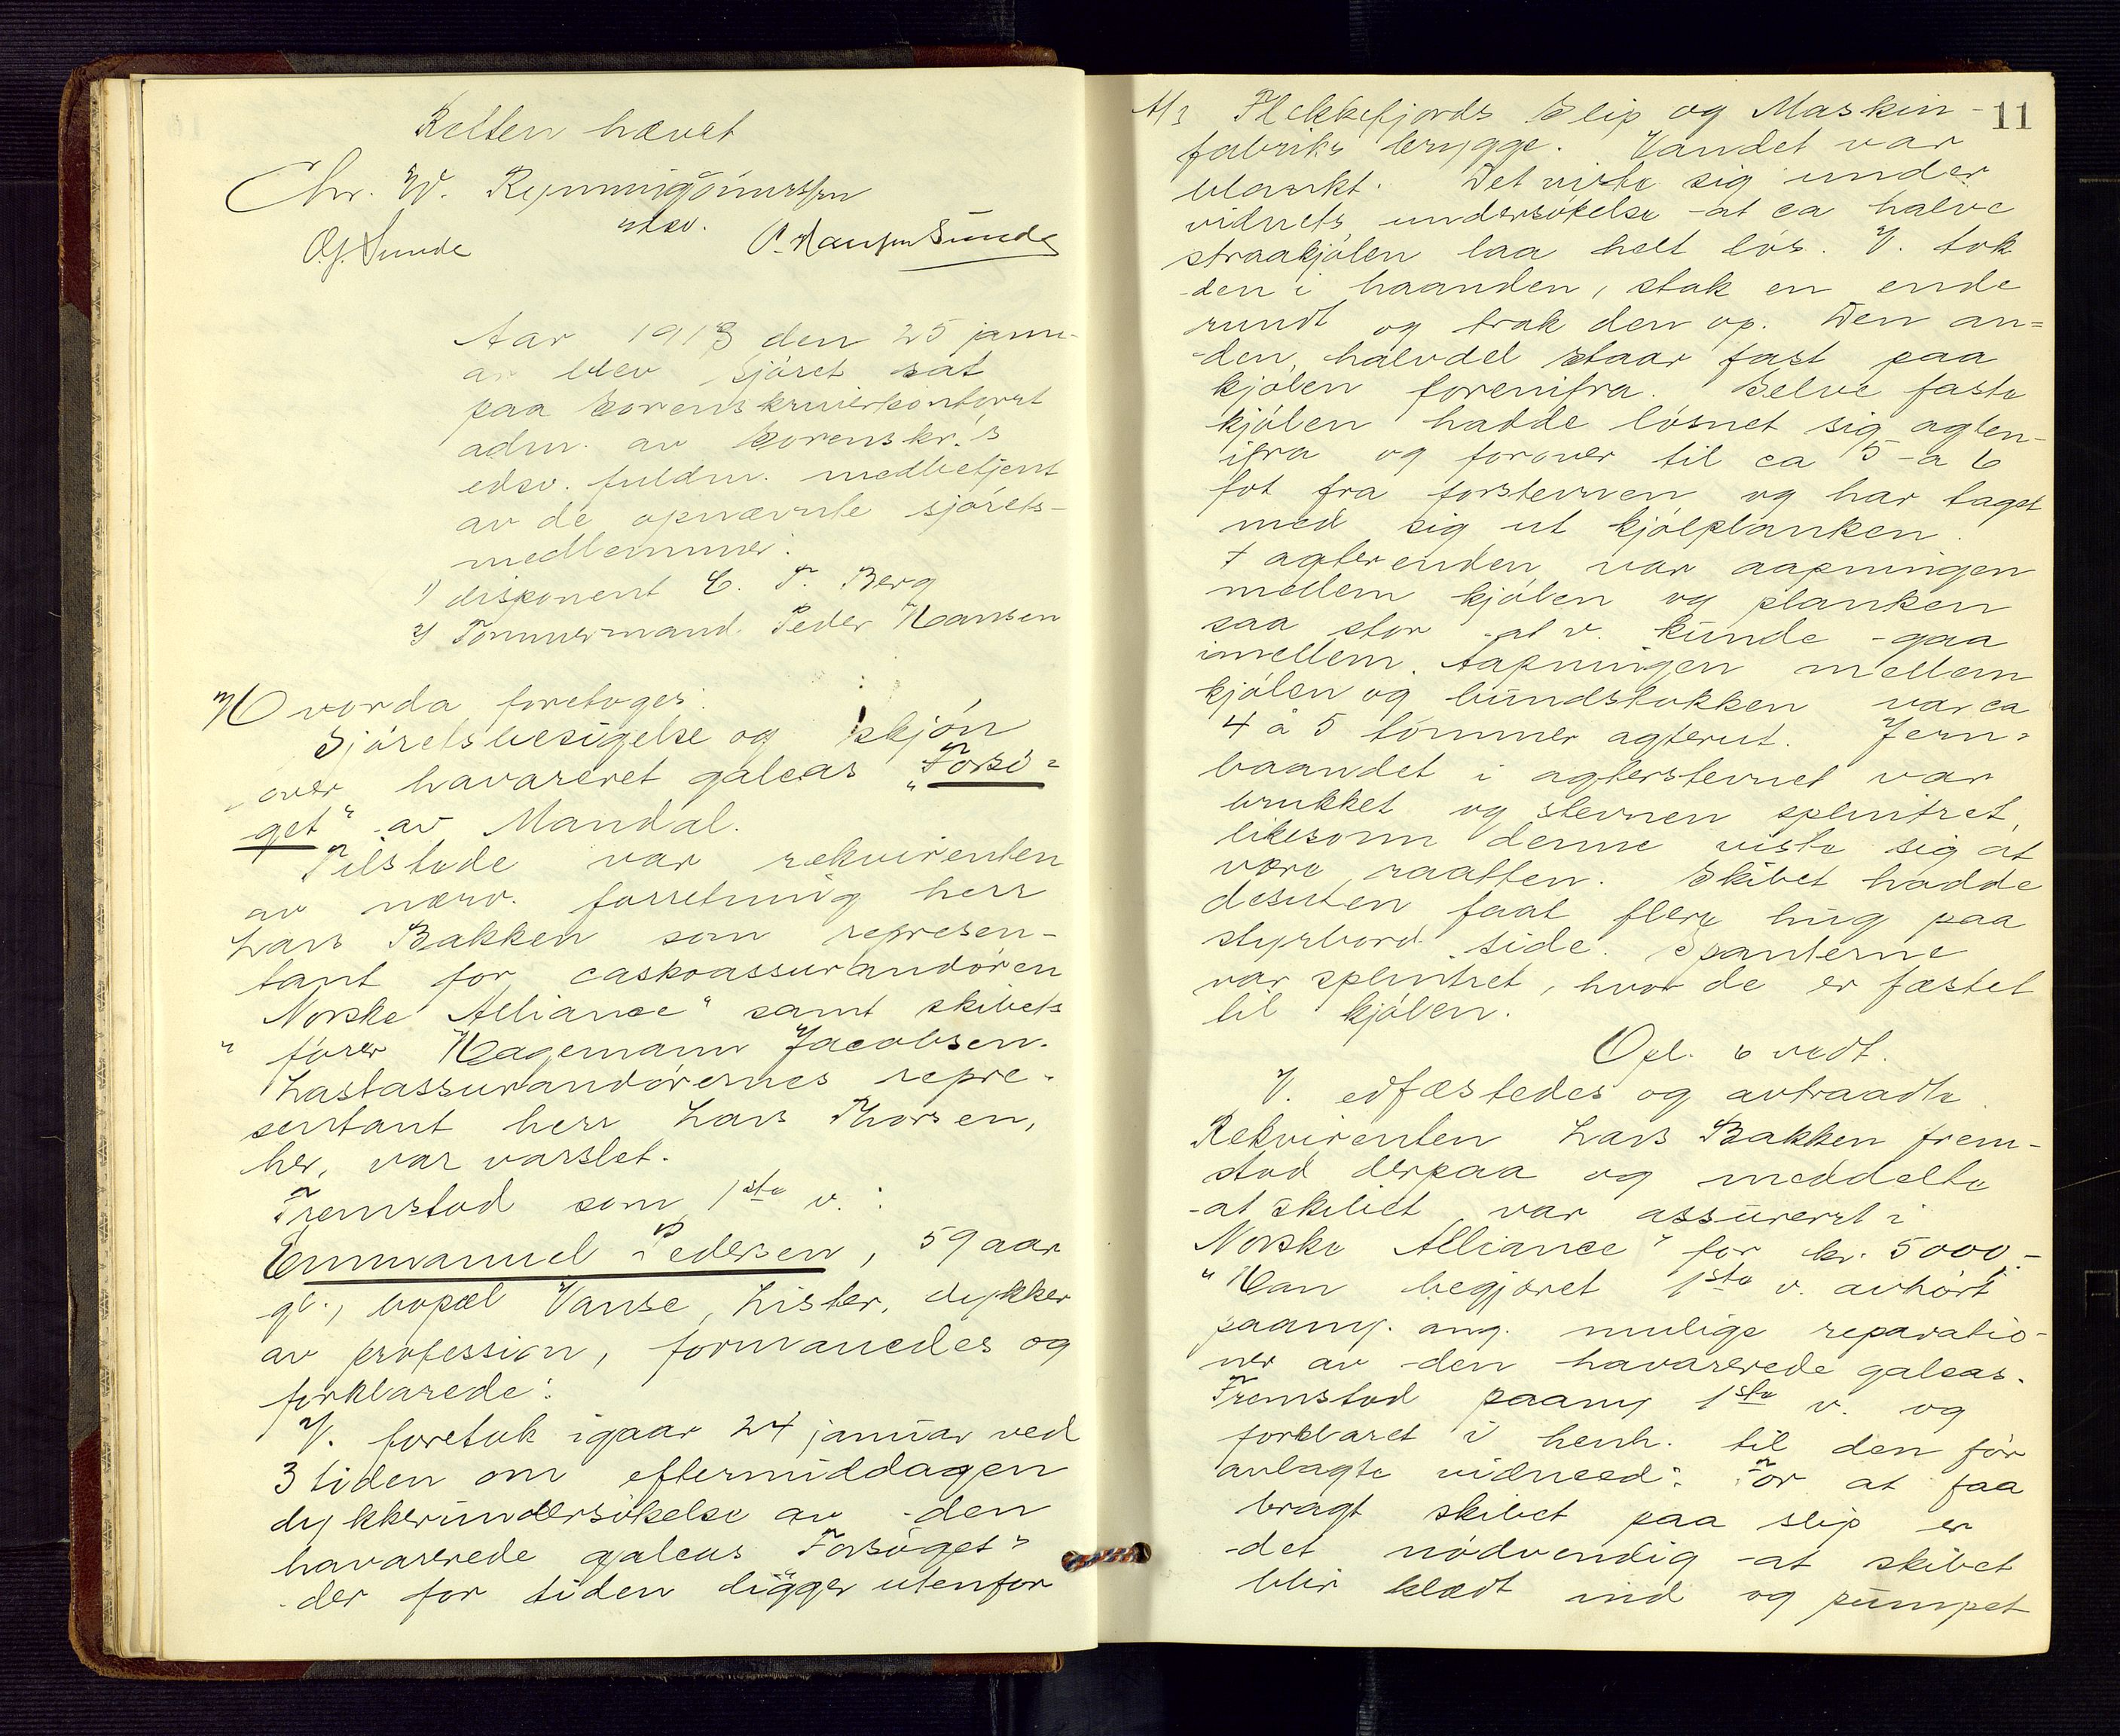 Retten hævet
Chr. W.
O. J. Sunde
Aar 1913 den 25 janu-
ar blev sjöret sat
paa sorenskriverkontoret
adm. av sorenskr.'s
edsv. fuldm. medbetjent
av de opnævnte sjörets-
medlemmer:
1) disponent C. T. Berg
2) Tömmermand Peder Hansen
Hvorda foretoges:
Sjöretsbesigelse og skjön
over havareret galeas "Forsö-
get" av Mandal.
Tilstede var rekvirenten
av nærv. forretning herr
Lars Bakken som represen-
tant for caskoassurandören
"Norske Alliance" samt skibets
förer Hagemann Jacobsen.
Lastassurandörernes repre-
sentant herr Lars Thorsen,
her, var varslet.
Fremstod som 1ste v.:
Emmanuel Pedersen, 59 aar
gl., bopæl Vanse, Lister, dykker
av profession, formanedes og
forklarede:
V. foretok igaar 24 januar ved
3 tiden om eftermiddagen
dykkerundersökelse av den
havarerede galeas "Forsöget"
der for tiden ligger utenfor
11
A/s Flekkefjords Slip og Maskin-
fabriks brygge. Vandet var
blankt. Det viste sig under
vidnets undersökelse at ca halve
straakjölen laa helt lös. V. tok
den i haanden, stak en ende
rundt og trak den op. Den an=
den halvdel staar fast paa
kjölen forenifra. Selve faste
kjölen hadde lösnet sig agten-
ifra og forover til ca 5 a 6
fot fra forstevnen og har taget
med sig ut kjölplanken.
I agterenden var aapningen
mellem kjölen og planken
saa stor at v. kunde gaa
imellem. Aapningen mellem
kjölen og bundstokken var ca
4 à 5 tommer agterut. Jern-
baandet i agterstevnet var
brukket og stevnen splintret,
likesom denne viste sig at
være raatten. Skibet hadde
desuten faat flere hug paa
styrbord side. Spanterne
var splintret, hvor de er fæstet
til kjölen.
Opl. & vedt.
V. edfæstedes og avtraadte.
Rekvirenten Lars Bakken frem-
stod derpaa og meddelte
at skibet var assureret i
"Norske Alliance" for kr. 5000,-
Han begjæret 1ste v. avhört
paany. ang. mulige reparatio-
ner av den havarerede galeas.
Fremstod paany 1ste v. og
forklaret i henh. til den för
avlagte vidneed: For at faa
bragt skibet paa slip er
det nödvendig at skibet
blir klædt ind og pumpet